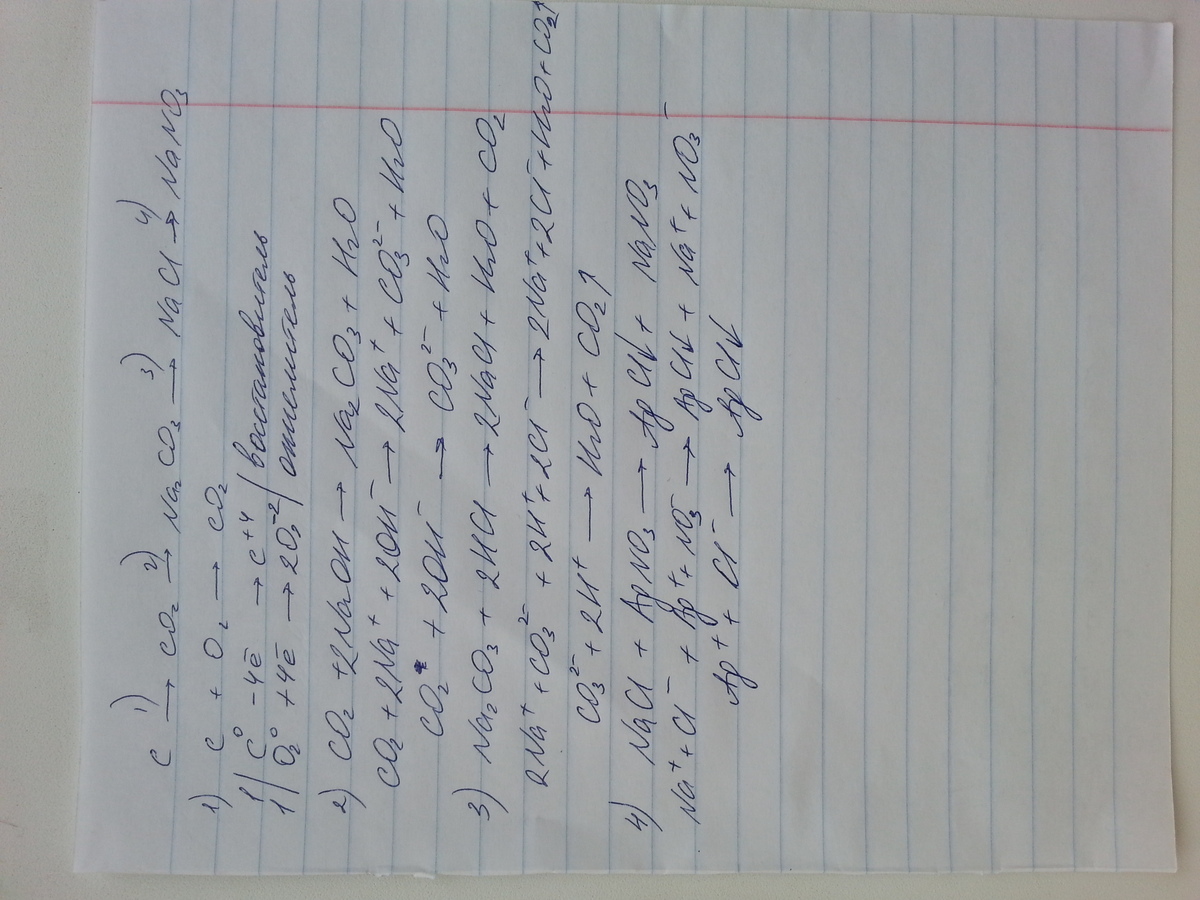 C —1)→ CO2 —2)→ Na2CO3 —3)→ NaCl —4)→ NaNO3
1) C + O2 → CO2
1| C⁰ -4ē → C⁺⁴ | востановитель
1| O2⁰ +4ē → 2O⁻² | окислитель
2) CO2 + 2NaOH → Na2CO3 + H2O
CO2 + 2Na⁺ + 2OH⁻ → 2Na⁺ + CO3²⁻ + H2O
CO2 + 2OH⁻ → CO3²⁻ + H2O
3) Na2CO3 + 2HCl → 2NaCl + H2O + CO2
2Na⁺ + CO3²⁻ + 2H⁺ + 2Cl⁻ → 2Na⁺ + 2Cl⁻ + H2O + CO2↑
CO3²⁻ + 2H⁺ → H2O + CO2↑
4) NaCl + AgNO3 → AgCl↓ + NaNO3
Na⁺ + Cl⁻ + Ag⁺ + NO3⁻ → AgCl↓ + Na⁺ + NO3⁻
Ag⁺ + Cl⁻ → AgCl↓